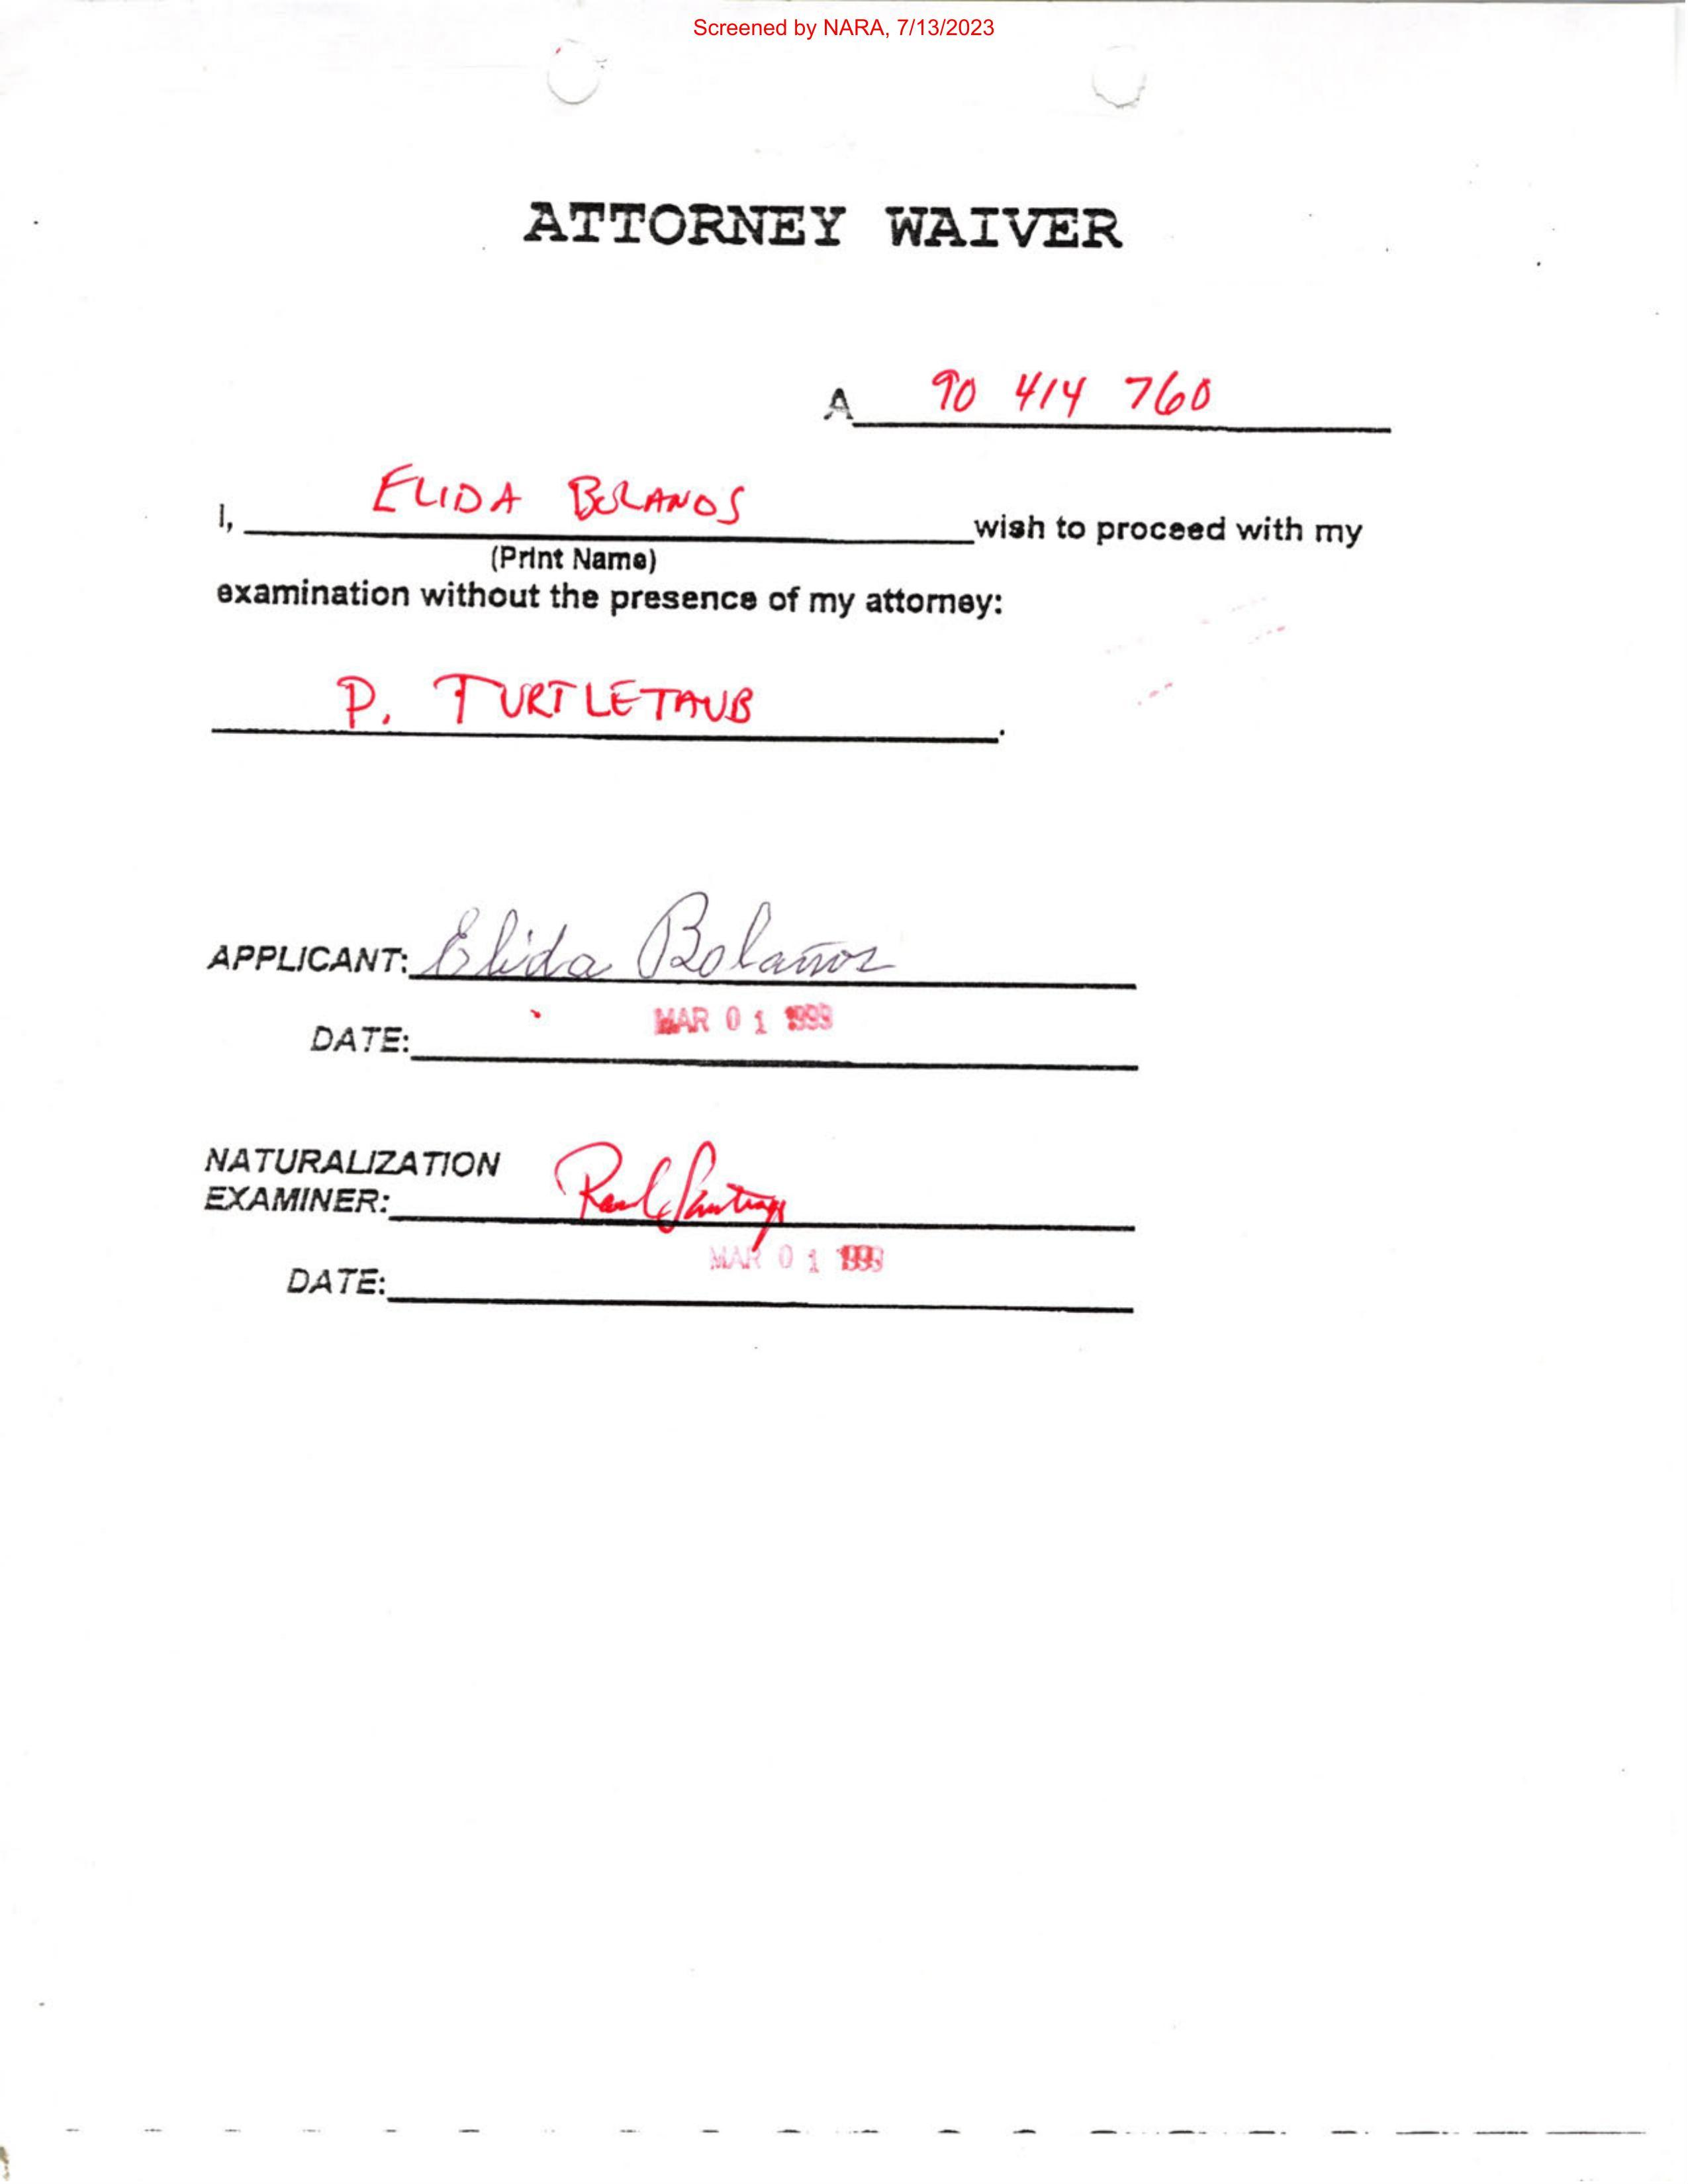 Screened by NARA, 7/13/2023
ATTORNEY WAIVER
A 90 414 760
I, ELIDA BOLANOS wish to proceed with my
(Print Name)
examination without the presence of my attorney:
P. TURTLETAUB.
APPLICANT: Elida Bolaños
DATE: MAR 01 1999
NATURALIZATION
EXAMINER: Raul Santiago
DATE: MAR 01 1999